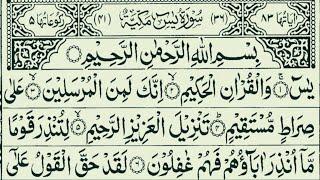 اٰیاتها ٨٣ (٣٦) سُوْرَةُ يٰسٓ مَكِّيَّةٌ (٤١) رُكُوْعَاتُهَا ٥
بِسْمِ اللّٰهِ الرَّحْمٰنِ الرَّحِيْمِ
يٰسٓ ۝١ وَالْقُرْاٰنِ الْحَكِيْمِ ۝٢ اِنَّكَ لَمِنَ الْمُرْسَلِيْنَ ۝٣ عَلٰى
صِرَاطٍ مُّسْتَقِيْمٍ ۝٤ تَنْزِيْلَ الْعَزِيْزِ الرَّحِيْمِ ۝٥ لِتُنْذِرَ قَوْمًا
مَّاۤ اُنْذِرَ اٰبَآؤُهُمْ فَهُمْ غٰفِلُوْنَ ۝٦ لَقَدْ حَقَّ الْقَوْلُ عَلٰۤى